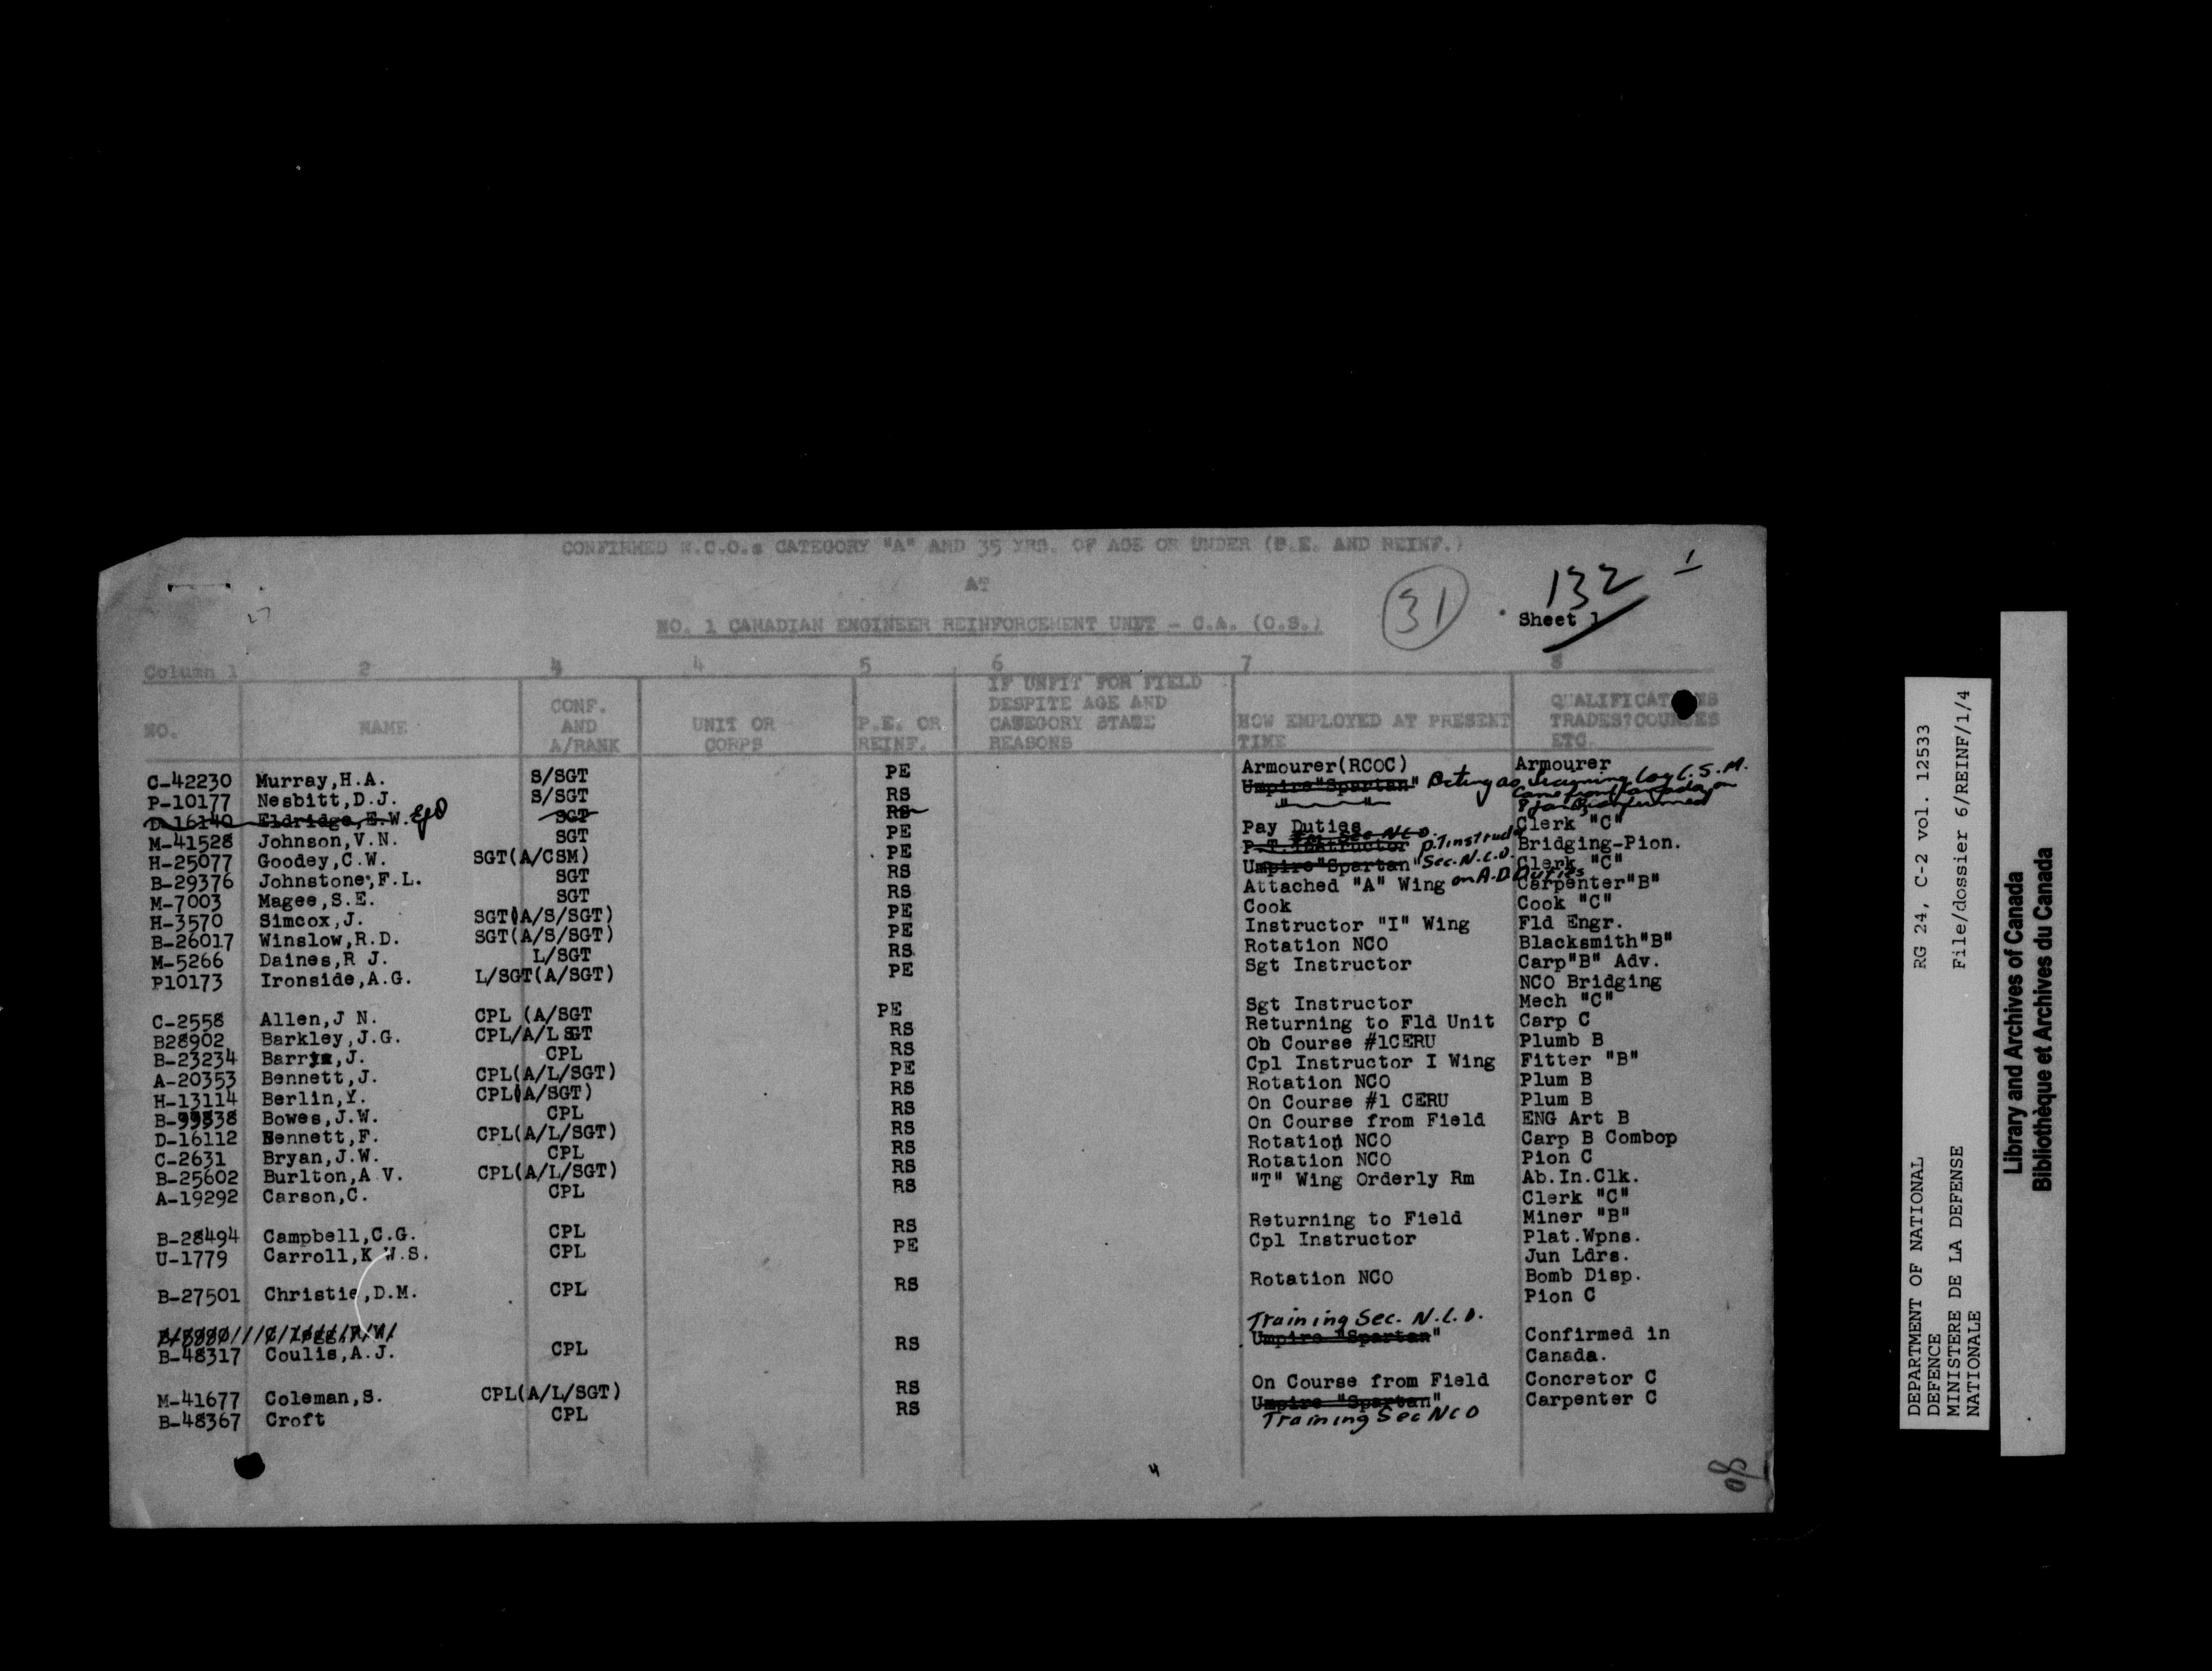 CONFIRMED N.C.O.s CATEGORY "A" AND 35 YRS. OF AGE OR UNDER (P.E. AND REINF.)
AT
NO. 1 CANADIAN ENGINEER REINFORCEMENT UNIT - C.A. (O.S.)
31
132
1
Sheet 1
Column 1 2 3 4 5 6 7 8
NO. NAME CONF. AND A/RANK UNIT OR CORPS P.E. OR REINF. IF UNFIT FOR FIELD DESPITE AGE AND CATEGORY STATE REASONS HOW EMPLOYED AT PRESENT TIME QUALIFICATIONS TRADES?COURSES ETC.
C-42230 Murray,H.A. S/SGT PE Armourer(RCOC) Armourer
P-10177 Nesbitt,D.J. S/SGT RS Umpire"Spartan" Acting as C.S.M. Came from Canada on 8 Jan confirmed
D-16140 Eldridge,E.W. SGT RS " "
M-41528 Johnson,V.N. SGT PE Pay Duties Clerk "C"
H-25077 Goodey,C.W. SGT(A/CSM) PE P.T. Instructor Sec NCO. P.T instruct Bridging-Pion.
B-29376 Johnstone,F.L. SGT RS Umpire"Spartan" Sec. N.C.O. Clerk "C"
M-7003 Magee,S.E. SGT RS Attached "A" Wing on A.D Duties Carpenter"B"
H-3570 Simcox,J. SGT(A/S/SGT) PE Cook Cook "C"
B-26017 Winslow,R.D. SGT(A/S/SGT) PE Instructor "I" Wing Fld Engr.
M-5266 Daines,R J. L/SGT RS Rotation NCO Blacksmith"B"
P10173 Ironside,A.G. L/SGT(A/SGT) PE Sgt Instructor Carp"B" Adv.
NCO Bridging
C-2558 Allen,J N. CPL (A/SGT PE Sgt Instructor Mech "C"
B28902 Barkley,J.G. CPL/A/L SGT RS Returning to Fld Unit Carp C
B-23234 Barr,J. CPL RS Ob Course #1CERU Plumb B
A-20353 Bennett,J. CPL(A/L/SGT) PE Cpl Instructor I Wing Fitter "B"
H-13114 Berlin,Y. CPL(A/SGT) RS Rotation NCO Plum B
B-99838 Bowes,J.W. CPL RS On Course #1 CERU Plum B
D-16112 Bennett,F. CPL(A/L/SGT) RS On Course from Field ENG Art B
C-2631 Bryan,J.W. CPL RS Rotation NCO Carp B Combop
B-25602 Burlton,A V. CPL(A/L/SGT) RS Rotation NCO Pion C
A-19292 Carson,C. CPL RS "T" Wing Orderly Rm Ab.In.Clk.
Clerk "C"
B-28494 Campbell,C.G. CPL RS Returning to Field Miner "B"
U-1779 Carroll,K W.S. CPL PE Cpl Instructor Plat.Wpns.
Jun Ldrs.
B-27501 Christie,D.M. CPL RS Rotation NCO Bomb Disp.
Pion C
Training Sec. N.C.O.
B-48317 Coulis,A.J. CPL RS Umpire "Spartan" Confirmed in
Canada.
M-41677 Coleman,S. CPL(A/L/SGT) RS On Course from Field Concretor C
B-48367 Croft CPL RS Umpire "Spartan" Carpenter C
Training Sec NCO
DEPARTMENT OF NATIONAL RG 24, C-2 vol. 12533
DEFENCE
MINISTERE DE LA DEFENSE File/dossier 6/REINF/1/4
NATIONALE
Library and Archives of Canada
Bibliothèque et Archives du Canada